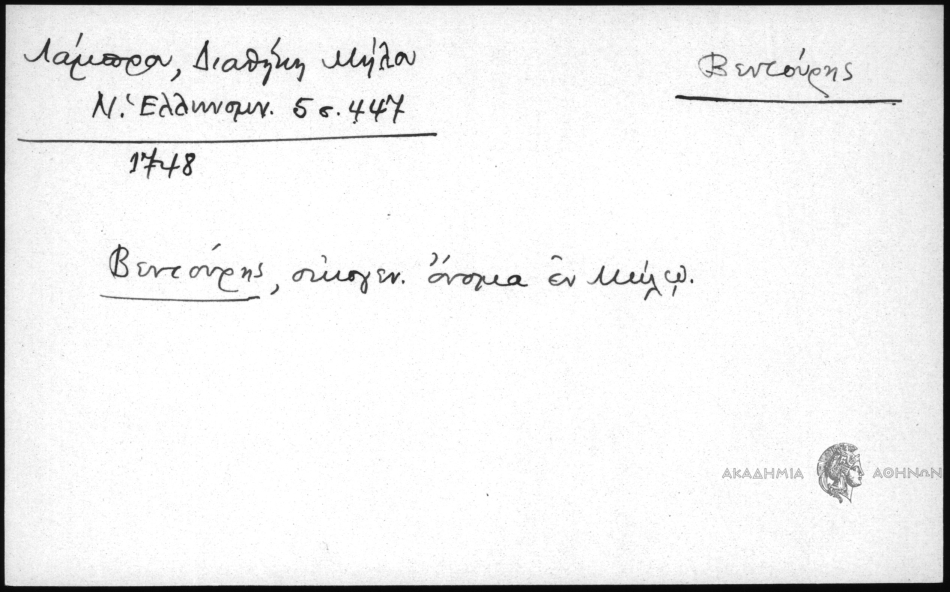 Λάμπρου, Διαθήκη Μήλου
Ν. Ἑλληνομν. 5 σ. 447
1748
Βεντούρης
Βεντούρης, οἰκογεν. ὄνομα ἐν Μήλῳ.
ΑΚΑΔΗΜΙΑ ΑΘΗΝΩΝ